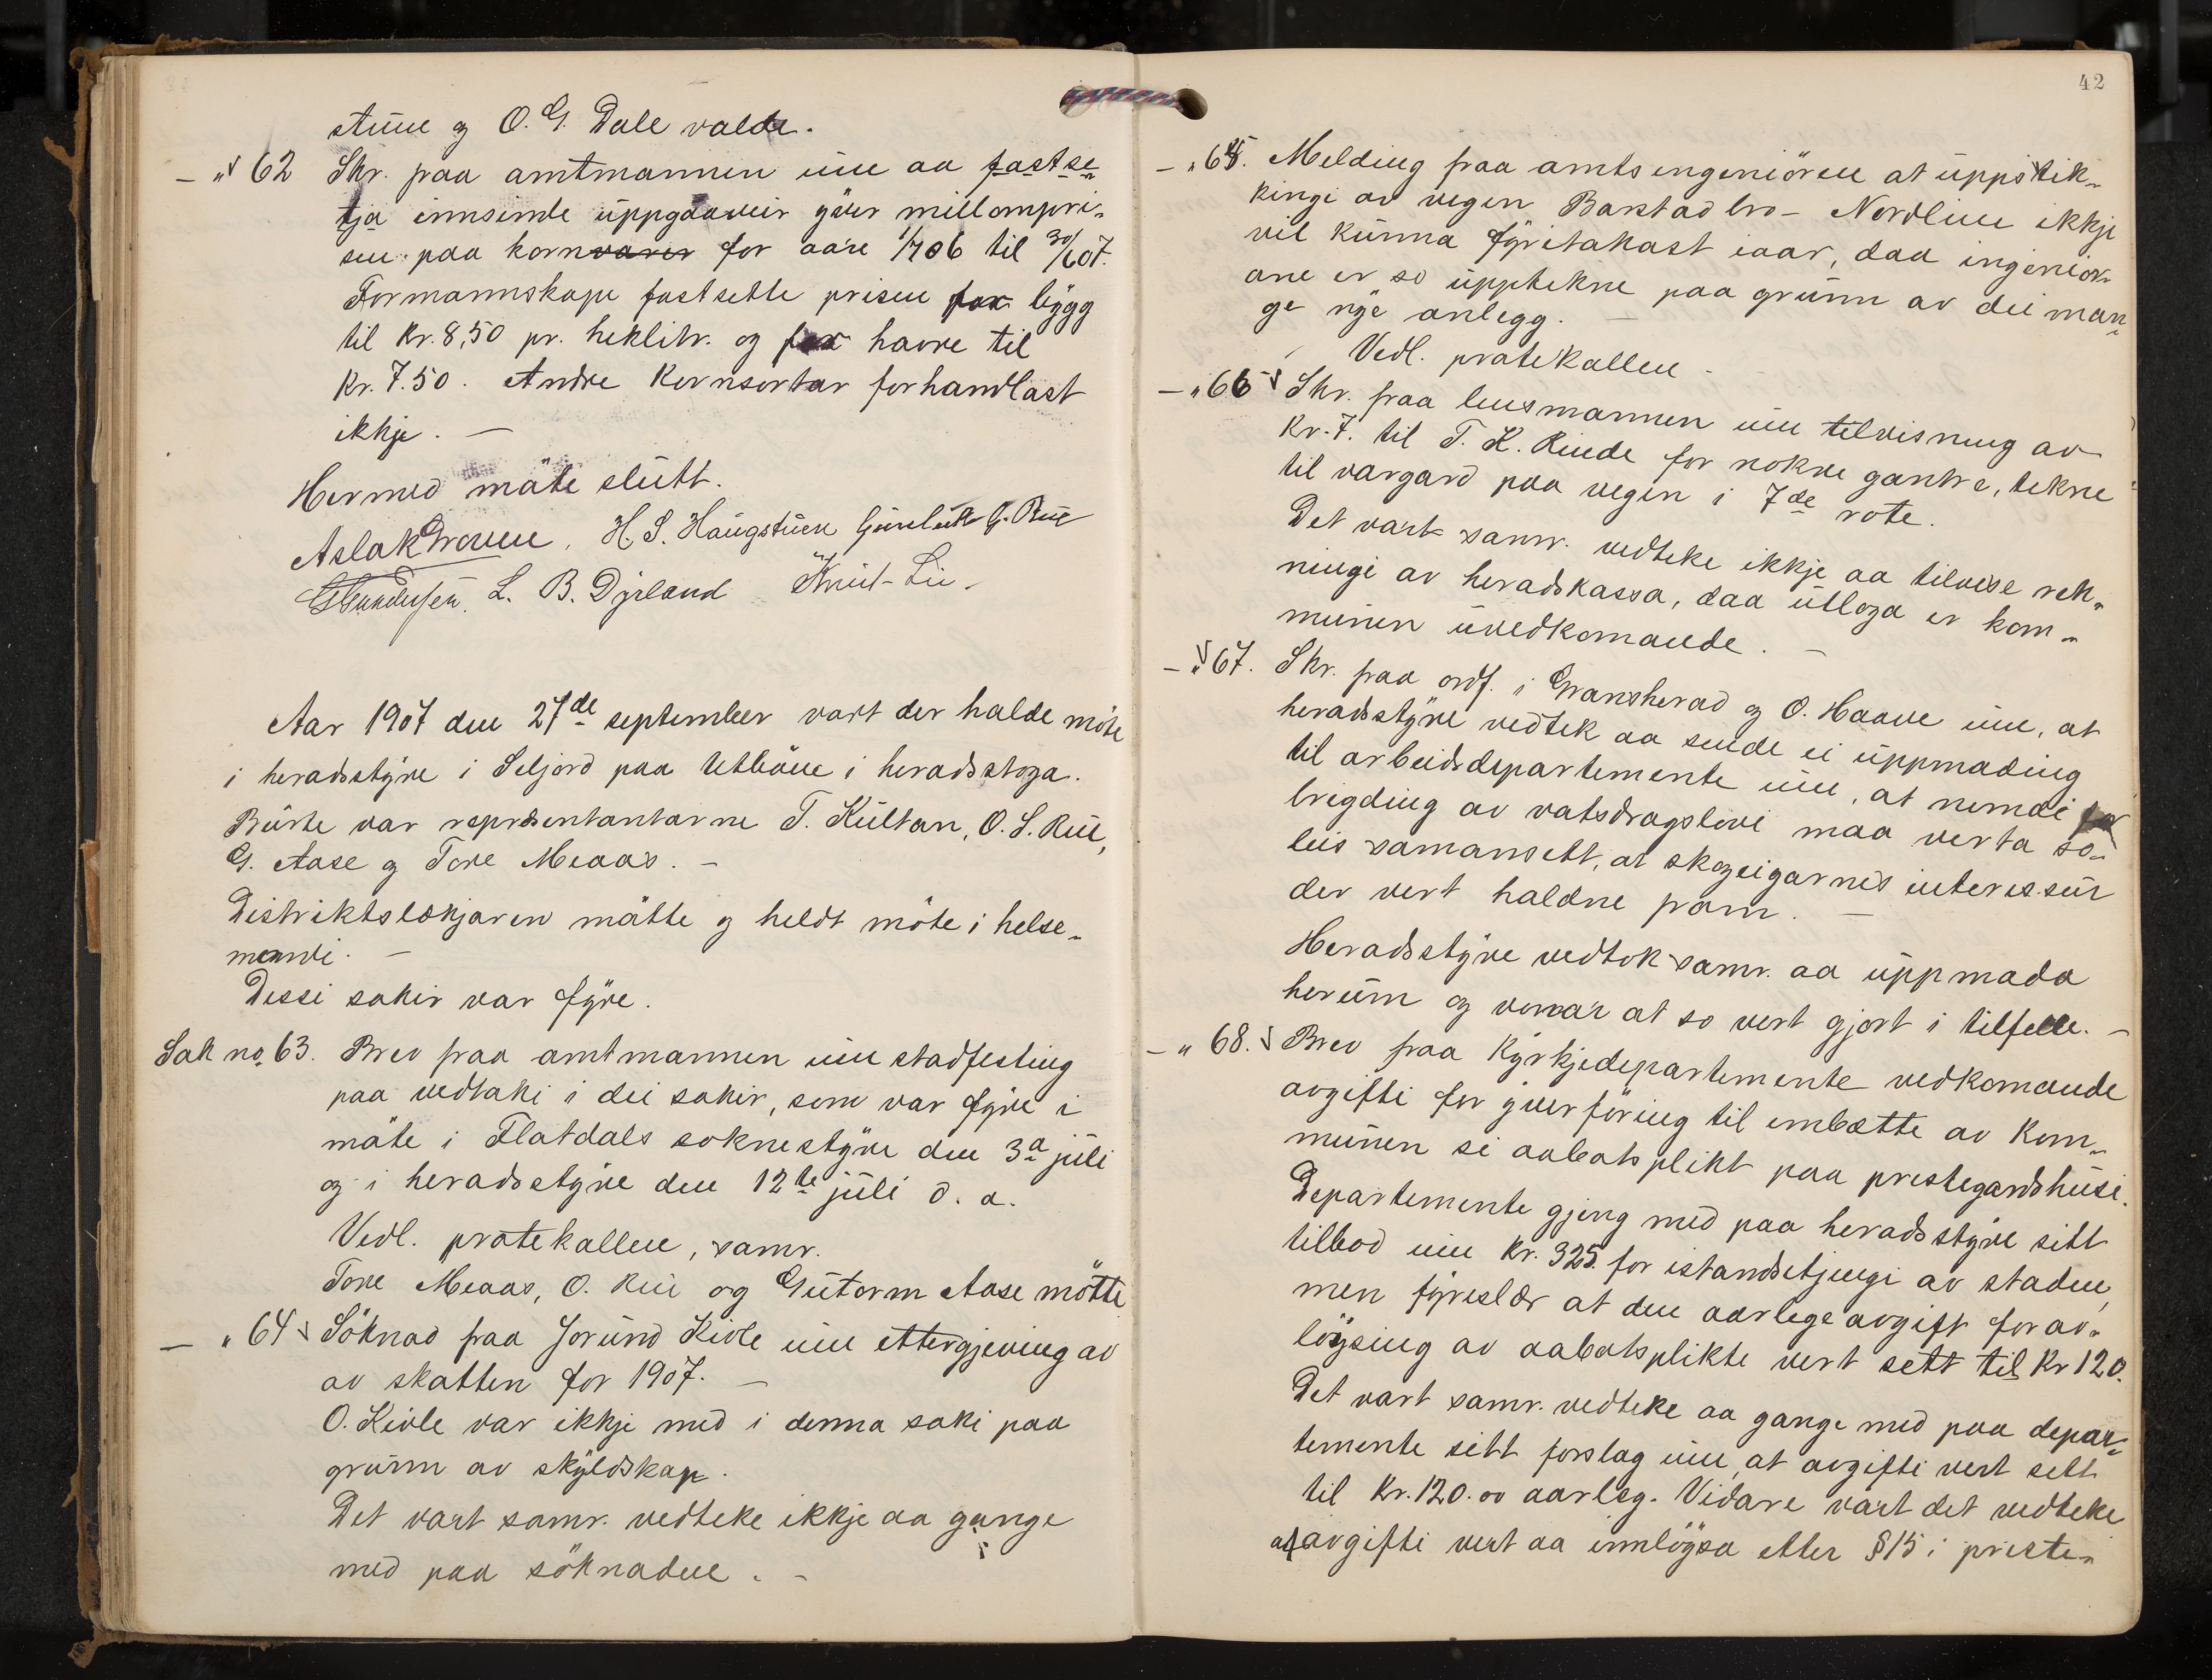 stuue og O. G. Dale valde.
— „ 62 Skr. fraa amtmannen um aa fastse„
tja innsende uppgaaveir yver millompri„
sen paa kornvarer for aare 1/7 06 til 30/6 07.
Formannskape fastsette prisen for bygg
til kr. 8,50 pr. heklitr. og for havre til
kr. 7.50. Andre kornsortar forhandlast
ikkje. —
Hermed mäte slutt.
Aslak Groven, H. S. Haugstuen Gunleik G. Rue
G Gundersen. L. B. Dyrland Knut Lie
Aar 1907 den 27de september vart der halde möte
i heradsstyre i Seljord paa Utböen i heradsstoga.
Burte var repræsentantarne T. Kultan, O. S. Rue,
G. Aase og Tore Meaas. —
Distriktslækjaren mätte og heldt möte i helse„
nemndi. —
Dessi sakir var fyre.
Sak no. 63. Brev fraa amtmannen um stadfesting
paa vedtaki i dei sakir, som var fyre i
mäte i Flatdals soknestyre den 3a juli
og i heradsstyre den 12te juli d. a.
Vedl. protekallen, samr.
Tore Meaas, O. Rue og Gutorm Aase mötte
— „ 64 Söknad fraa Jorund Kivle um ettergjeving av
av skatten for 1907. —
O. Kivle var ikkje med i denna saki paa
grunn av skyldskap.
Det vart samr. vedteke ikkje aa gange
med paa söknaden. —
42
— „ 65. Melding fraa amtsingeniören at uppstik„
kingi av vegen Barstad bro – Nordlien ikkje
vil kunna fyritakast iaar, daa ingeniör„
ane er so upptekne paa grunn av dei man„
ge nye anlegg. —
Vedl. protekallen —
— „ 66 Skr. fraa lensmannen um tilvisning av
Kr. 7. til T. K. Rinde for nokre gantre, tekne
til vargard paa vegen i 7de rote.
Det vart samr. vedteke ikkje aa tilvise rek„
ningi av heradskassa, daa utloga er kom„
munen uvedkomande. —
— „ 67. Skr. fraa ordf. i Gransherad og O. Haave um, at
heradsstyre vedtek aa sende ei uppmading
til arbeidsdepartemente um, at nemdi for
brigding av vatsdragslovi maa verta so„
leis samansett, at skogeigarnes interessur
der vert haldne fram. —
Heradsstyre vedtok samr. aa uppmada
herum og vonar at so vert gjort i tilfelle. —
— „ 68. Brev fraa Kyrkjedepartemente vedkomande
avgifti for yverföring til embætte av kom„
munen si aabotsplikt paa prestegardshusi.
Departemente gjeng med paa heradsstyre sitt
tilbod um kr. 325. for istandsetjingi av staden,
men fyreslær at den aarlege avgift for av„
löysing av aabotsplikte vert sett til Kr 120.
Det vart samr. vedteke aa gange med paa depar„
temente sitt forslag um, at avgifti vert sett
til Kr. 120.00 aarleg. Vidare vart det vedteke
at avgifti vert aa innlöysa etter § 15 i preste„